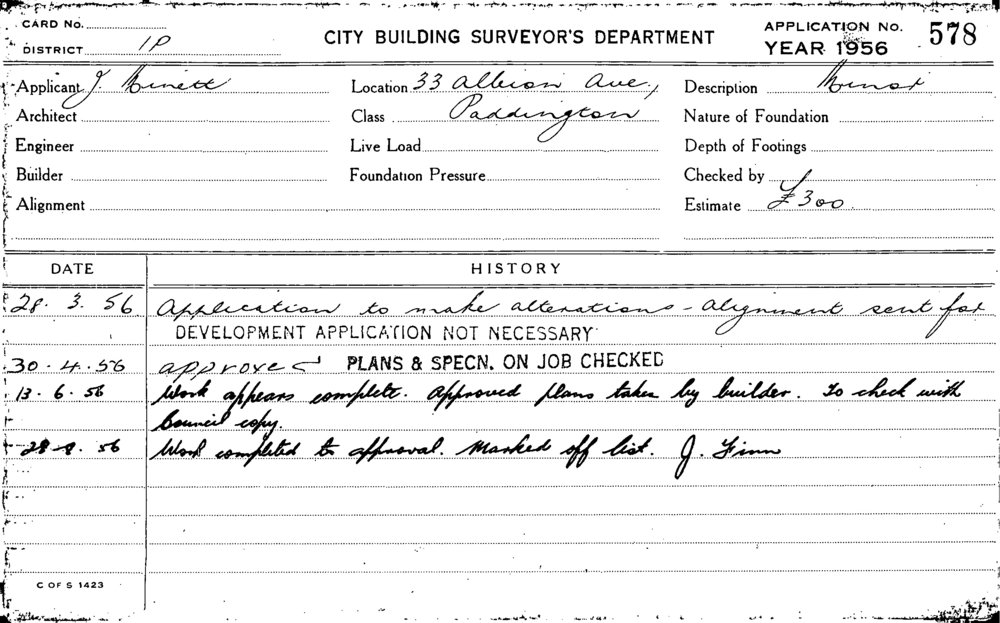 CARD No.
DISTRICT 1P
CITY BUILDING SURVEYOR'S DEPARTMENT
APPLICATION No. 578
YEAR 1956
Applicant J.
Location 33 Albion Ave.,
Description Minor
Architect
Class Paddington
Nature of Foundation
Engineer
Live Load
Depth of Footings
Builder
Foundation Pressure
Checked by
Alignment
Estimate £300
DATE HISTORY
28. 3. 56 Application to make alterations - alignment sent for
DEVELOPMENT APPLICATION NOT NECESSARY
30. 4. 56 approved PLANS & SPECN. ON JOB CHECKED
13. 6. 56 Work appears complete. Approved plans taken by builder. To check with
Council copy.
28-8. 56 Work completed to approval. Marked off list. J. Finn
C OF S 1423